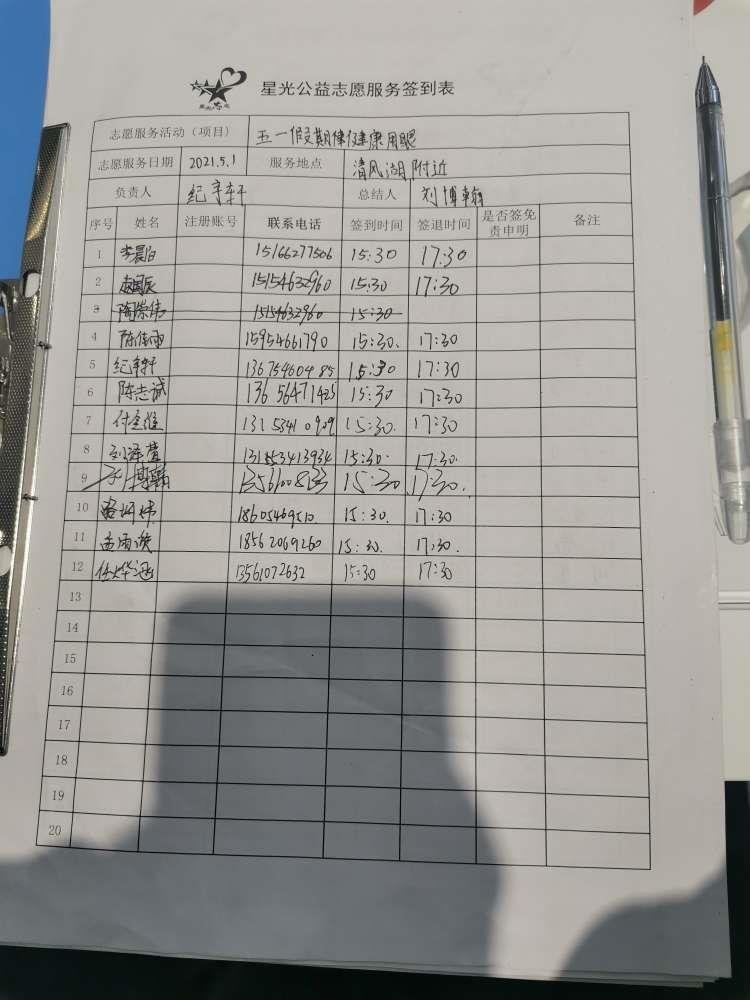 星光公益志愿服务签到表
志愿服务活动（项目） 五一假期 健康用眼
志愿服务日期 2021.5.1 服务地点 清风湖附近
负责人 纪宇轩 总结人 刘博翰
序号 姓名 注册账号 联系电话 签到时间 签退时间 是否签免责申明 备注
1 李晨 15166277506 15:30 17:30
2 15154632960 15:30 17:30
3 陶崇伟 15154632960 15:30
4 陈佳雨 15954661790 15:30. 17:30
5 纪宇轩 13675460485 15:30 17:30
6 陈志诚 13656471425 15:30 17:30
7 13153410909 15:30. 17:30
8 刘泽萱 15:30. 17:30.
9 刘博翰 15:30 17:30.
10 18605469510. 15:30. 17:30
11 孟雨 18562069260 15:30. 17:30.
12 任烨涵 13561072632 15:30 17:30
13
14
15
16
17
18
19
20